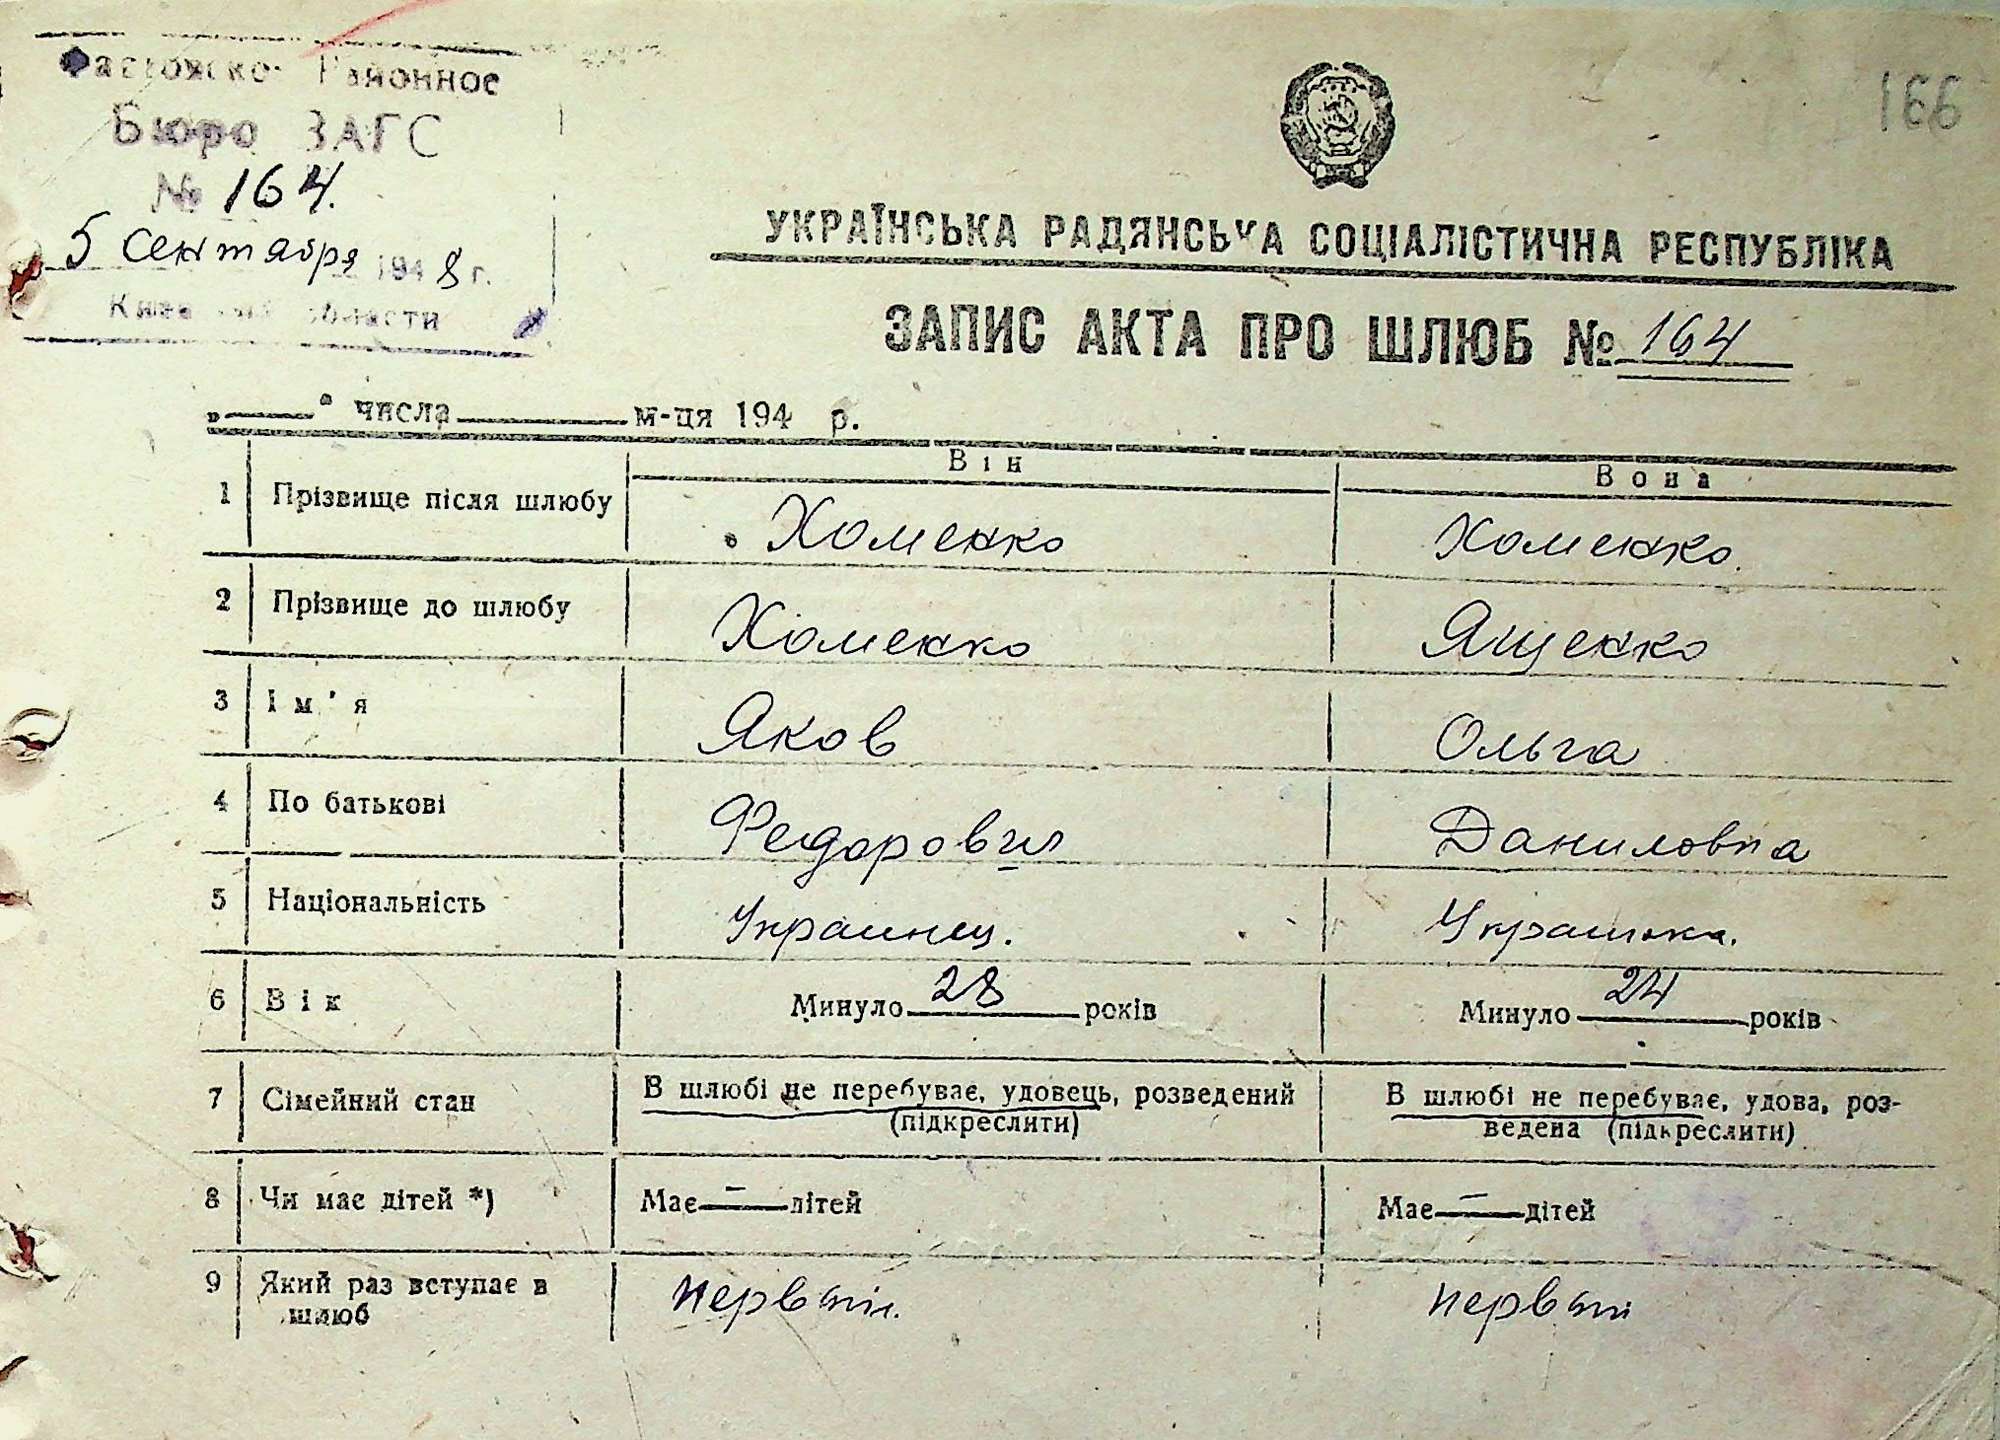 Фастовско Районное
Бюро ЗАГС
№ 164.
5 сентября 1948 г.
Киевской области
166
УКРАЇНСЬКА РАДЯНСЬКА СОЦІАЛІСТИЧНА РЕСПУБЛІКА
ЗАПИС АКТА ПРО ШЛЮБ № 164
„ “ числа м-ця 194 р.
Він Вона
1 Прізвище після шлюбу Хоменко Хоменко.
2 Прізвище до шлюбу Хоменко Ященко
3 Ім'я Яков Ольга
4 По батькові Федорович Даниловна
5 Національність Украинец. Украинка.
6 Вік Минуло 28 років Минуло 24 років
7 Сімейний стан В шлюбі не перебуває, удовець, розведений В шлюбі не перебуває, удова, роз-
(підкреслити) ведена (підкреслити)
8 Чи має дітей *) Має — дітей Має — дітей
9 Який раз вступає в Первый. Первый
шлюб